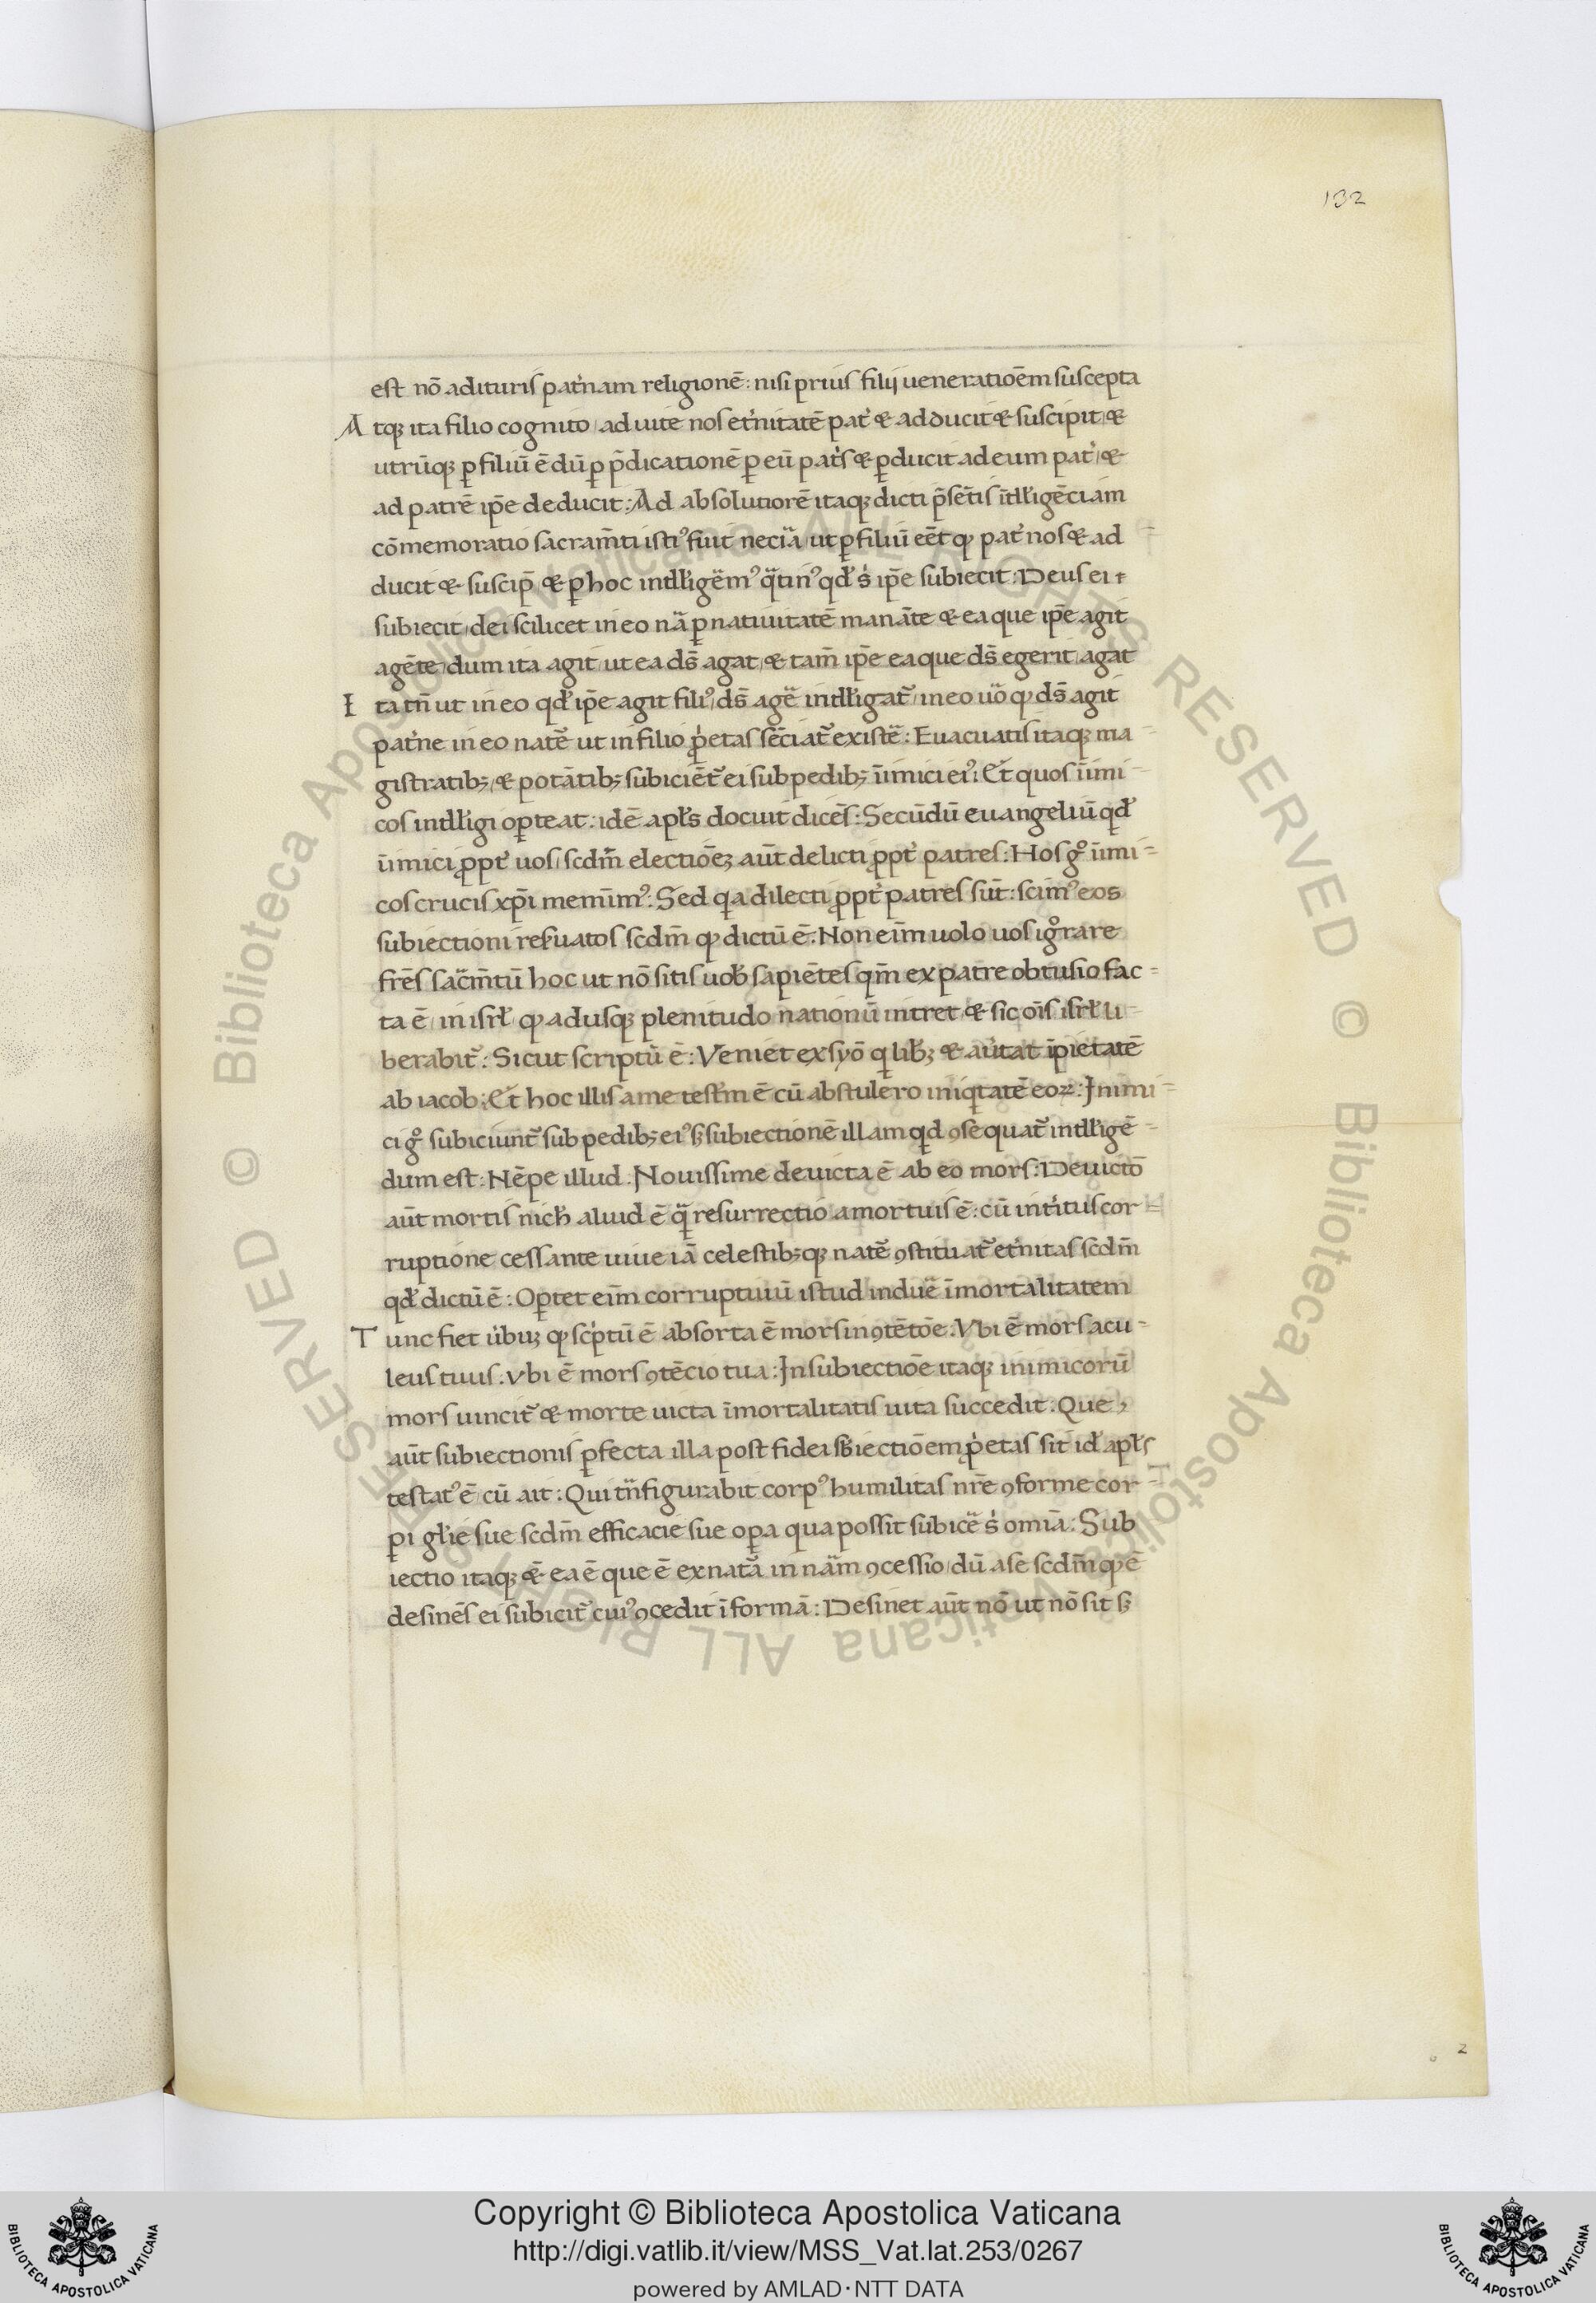 132
est nō adituris pat͛nam religionē: nisi prius filij ueneratiōem suscepta
Atqꝫ ita filio cognito, ad uite nos et͛nitatē pat͛ & adducit & suscipit, &
utrūqꝫ ꝑ filiū ē dū ꝑ p̄dicationē ꝑ eū pat͛s & ꝑducit ad eum pat͛, &
ad patrē ip̄e deducit: Ad absolutiorē itaqꝫ dicti p̄sētis ītll'igēciam
cōmemoratio sacram̄ti istiꝰ fuit neciā ut ꝑ filiū eēt ꝙ pat͛ nos & ad
ducit & suscip̄ & ꝑ hoc intll'igēmꝰ q̄tinꝰ qd' s͛ ip̄e subiecit: Deus ei
subiecit, dei scilicet in eo nā ꝑ natiuitatē manāte & ea que ip̄e agit
agēte, dum ita agit, ut ea ds̄ agat, & tam̄ ip̄e ea que ds̄ egerit, agat
Ita tn̄ ut in eo qd' ip̄e agit filiꝰ, ds̄ agē intll'igat᷑, in eo uō ꝙ ds̄ agit
pat͛ne in eo natē ut in filio ꝓ͛etas sēciat᷑ existē: Euacuatis itaqꝫ ma-
gistratibꝫ, & potātibꝫ subiciēt᷑ ei sub pedibꝫ īimici eiꝰ: Et quos īimi-
cos intll'igi oꝑteat: idē apl's docuit dicēs: Secūdū euangeliū qd'
īimici ꝓpt͛ uos, scdm̄ electiōeꝫ aūt delicti ꝓpt͛ patres: Hos gͦ īimi-
cos crucis xp̄i memīmꝰ: Sed qa dilecti ꝓpt͛ patres sūt: scimꝰ eos
subiectioni reẜuatos scdm̄ ꝙ dictū ē: Non eim̄ uolo uos igͦrare
fr̄es sac̄m̄tū hoc ut nō sitis uob' sapiētes qm̄ ex patre obtusio fac-
ta ē, in isrl' ꝙ adusqꝫ plenitudo nationū intret & sic oīs isrl' li-
berabit᷑: Sicut scriptū ē: Veniet ex syō q lib'ꝫ & au͛tat īpietatē
ab iacob: Et hoc illis a me testm̄ ē cū abstulero iniqtatē eoꝝ: Inimi-
ci gͦ subiciunt᷑ sub pedibꝫ eiꝰ sꝫ subiectionē illam qd ꝯsequat᷑ intll'igē-
dum est: Nēpe illud: Nouissime deuicta ē ab eo mors: Deuictō
aūt mortis nich' aliud ē q̄ resurrectio a mortuis ē: cū int͛itus cor-
ruptione cessante uiue iā celestibꝫqꝫ natē ꝯstituat᷑ et͛nitas scdm̄
qd' dictū ē: Oꝑtet eim̄ corruptiuū istud induē īmortalitatem
Tunc fiet u͛buꝫ ꝙ sc͛ptū ē absorta ē mors in ꝯtētōe: Vbi ē mors acu-
leus tuus: vbi ē mors ꝯtēcio tua: In subiectiōe itaqꝫ inimicorū
mors uincit᷑ & morte uicta īmortalitatis uita succedit: Que
aūt subiectionis ꝑfecta illa post fidei sb'iectiōem ꝓ͛etas sit id' apl's
testatꝰ ē, cū ait: Qui tn̄figurabit corpꝰ humilitas nr̄e ꝯforme cor-
ꝑi gl'ie sue scdm̄ efficacie sue oꝑa qua possit subicē s͛ omīa: Sub
iectio itaqꝫ & ea ē que ē ex natā in nām ꝯcessio, dū a se scdm̄ ꝙ ē
desinēs ei subicit᷑ cuiꝰ ꝯcedit ī formā: Desinet aūt nō ut nō sit sꝫ
2
Copyright © Biblioteca Apostolica Vaticana
http://digi.vatlib.it/view/MSS_Vat.lat.253/0267
powered by AMLAD·NTT DATA